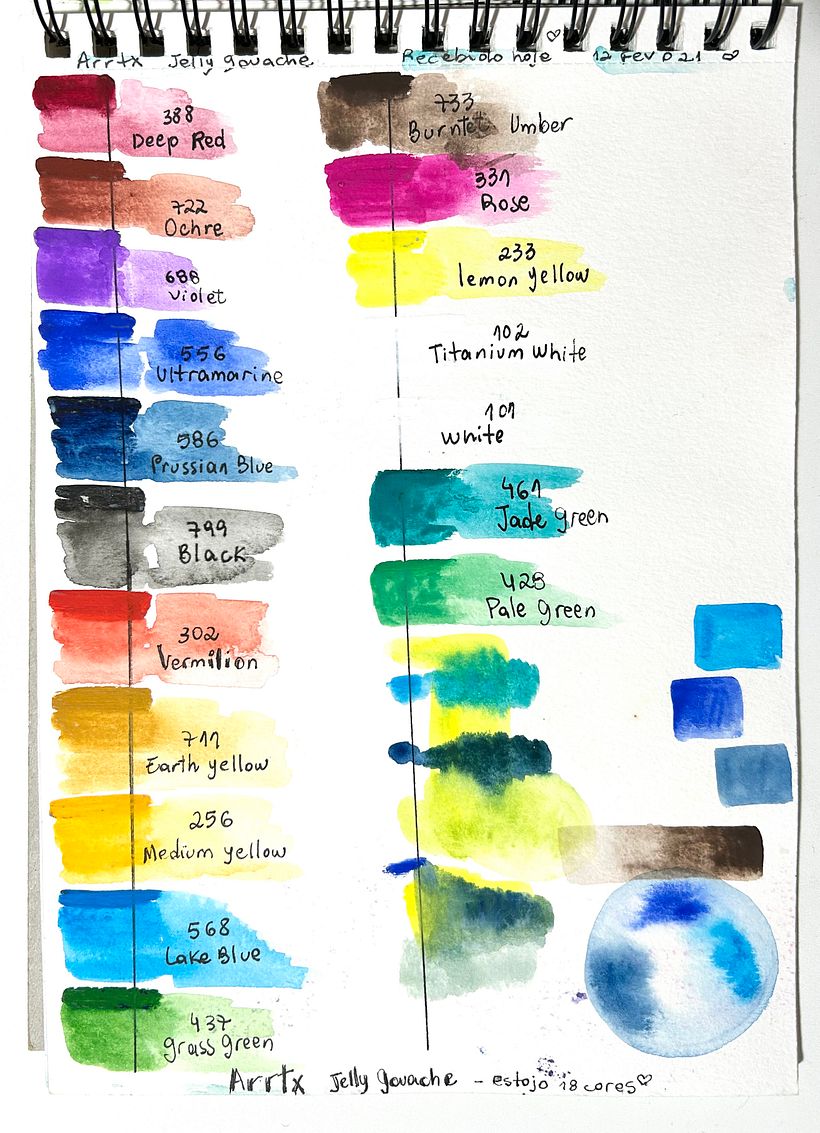 Arrtx Jelly gouache
Recebido hoje ♡ 12 fev 021 ♡
388
Deep Red
722
Ochre
688
violet
556
Ultramarine
586
Prussian Blue
799
Black
302
Vermilion
711
Earth yellow
256
Medium yellow
568
Lake Blue
437
grass green
733
Burntet Umber
331
Rose
233
lemon yellow
102
Titanium White
101
White
461
Jade green
428
Pale green
Arrtx Jelly gouache - estojo 18 cores ♡